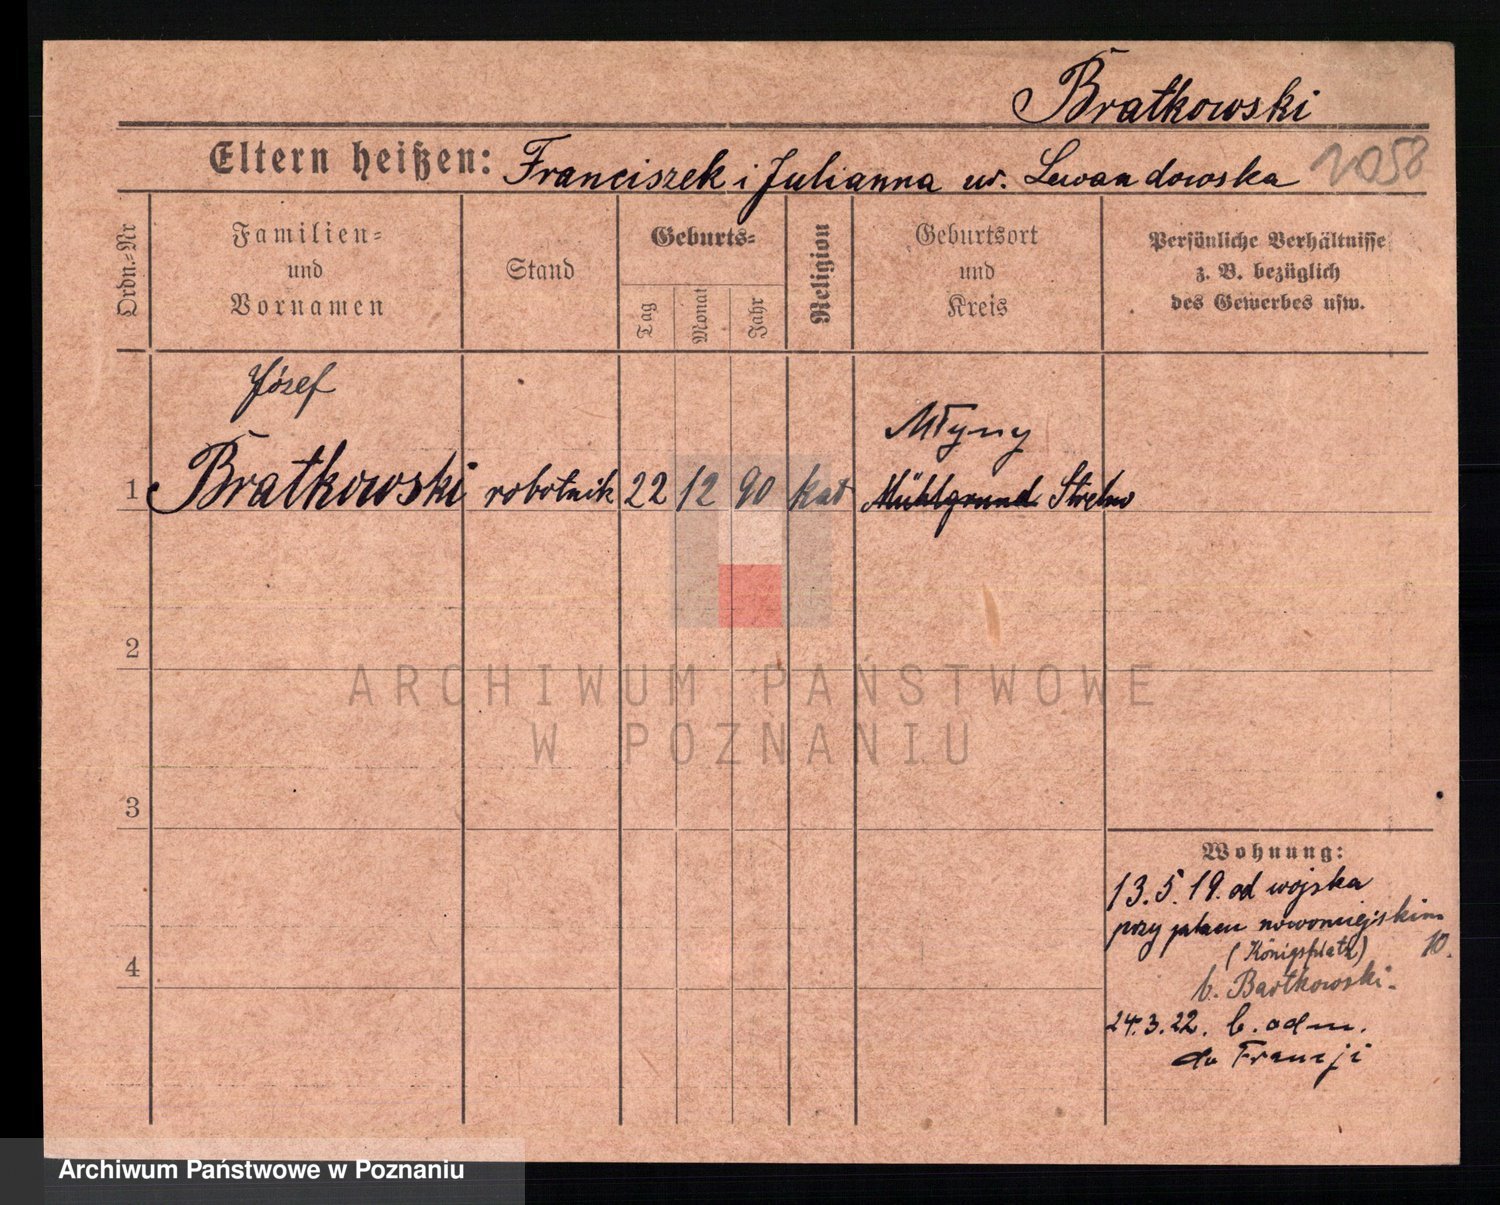 Bratkowski
Eltern heißen: Franciszek i Julianna ur. Lewandowska 1058
Ordn.-Nr
Familien- und Vornamen
Stand
Geburts-
Tag
Monat
Jahr
Religion
Geburtsort und Kreis
Persönliche Verhältnisse
z. B. bezüglich
des Gewerbes usw.
Józef
Młyny
1 Bratkowski robotnik 22 12 90 kat Mühlgrund Strelno
2
ARCHIWUM PAŃSTWOWE
W POZNANIU
3
Wohnung:
13.5.19. od wojska
przy placu nowomiejskim
(Königsplatz) 10.
b. Bartkowski.
4
24.3.22. b. odm.
do Francji
Archiwum Państwowe w Poznaniu